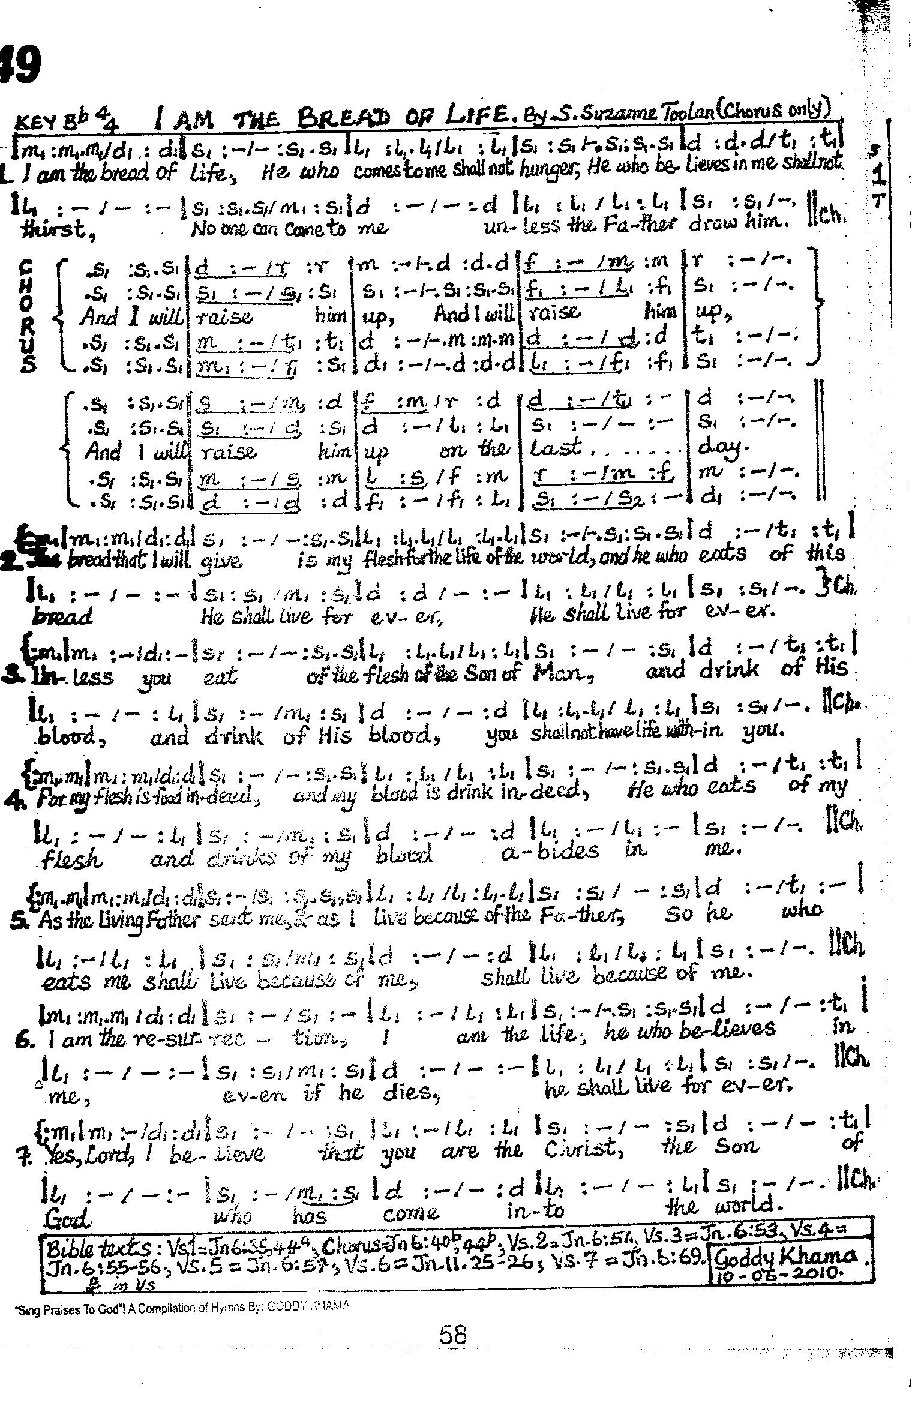 49
KEY Bb 4/4 I AM THE BREAD OF LIFE. By S. Suzanne Toolan (Chorus only)
|m₁ :m₁.m₁/d₁ : d₁|s₁ :-/- :s₁.s₁|l₁ :l₁.l₁/l₁ : l₁|s₁ :s₁/-.s₁:s₁.s₁|d :d.d/t₁ :t₁|
1. I am the bread of life, He who comes to me shall not hunger, He who be-lieves in me shall not
|l₁ : - / - : - |s₁ :s₁.s₁/m₁ : s₁|d : - / - : d |l₁ : l₁ / l₁ : l₁ |s₁ : s₁/-. ||Ch.
thirst, No one can come to me un-less the Fa-ther draw him.
CHORUS
.s₁ :s₁.s₁|d :-/r :r |m :-/-.d :d.d|f :-/m :m |r :-/-.
.s₁ :s₁.s₁|s₁ :-/s₁ :s₁|s₁ :-/-.s₁:s₁.s₁|f₁ :-/l₁ :f₁ |s₁ :-/-.
And I will raise him up, And I will raise him up,
.s₁ :s₁.s₁|m :-/t₁ :t₁|d :-/-.m :m.m|d :-/d :d |t₁ :-/-.
.s₁ :s₁.s₁|m₁ :-/f₁ :s₁|d₁ :-/-.d :d.d|l₁ :-/f₁ :f₁ |s₁ :-/-.
.s₁ :s₁.s₁|s :-/m :d |f :m/r :d |d :-/t₁ :- |d :-/-.
.s₁ :s₁.s₁|s₁ :-/d :s₁|d :-/l₁ :l₁|s₁ :-/- :- |s₁ :-/-.
And I will raise him up on the last........ day.
.s₁ :s₁.s₁|m :-/s :m |l :s/f :m |r :-/m :f |m :-/-.
.s₁ :s₁.s₁|d :-/d :d |f₁ :-/f₁ :l₁|s₁ :-/s₂ :-|d₁ :-/-.
|m₁:m₁/d₁:d₁|s₁ :-/-:s₁.s₁|l₁ :l₁.l₁/l₁ :l₁.l₁|s₁ :-/-.s₁:s₁.s₁|d :-/t₁ :t₁|
2. The bread that I will give is my flesh for the life of the world, and he who eats of this
|l₁ : - / - : - |s₁ : s₁ /m₁ : s₁|d : d / - : -|l₁ : l₁/l₁ : l₁|s₁ : s₁/-. }Ch.
bread He shall live for ev-er, He shall live for ev-er.
{:m₁|m₁ :-/d₁:-|s₁ :-/-:s₁.s₁|l₁ :l₁.l₁/l₁ :l₁|s₁ :-/- :s₁|d :-/t₁ :t₁|
3. Un-less you eat of the flesh of the Son of Man, and drink of His
|l₁ :-/- :l₁|s₁ :-/m₁ :s₁|d :-/- :d |l₁ :l₁.l₁/l₁ :l₁|s₁ :s₁/-. ||Ch.
blood, and drink of His blood, you shall not have life with-in you.
{:m₁.m₁|m₁:m₁/d₁:d|s₁ :-/-:s₁.s₁|l₁ :l₁/l₁ :l₁|s₁ :-/-:s₁.s₁|d :-/t₁ :t₁|
4. For my flesh is food in-deed, and my blood is drink in-deed, He who eats of my
|l₁ :-/- :l₁|s₁ :-/m₁ :s₁|d :-/- :d |l₁ :-/l₁ :- |s₁ :-/-. ||Ch.
flesh and drinks of my blood a-bides in me.
{:m₁.m₁|m₁:m₁/d₁:d₁|s₁:-/s₁ :s₁.s₁.s₁|l₁ :l₁/l₁ :l₁.l₁|s₁ :s₁/- :s₁|d :-/t₁ :- |
5. As the living Father sent me, & as I live because of the Fa-ther, so he who
|l₁ :-/l₁ :l₁ |s₁ :s₁/m₁ :s₁|d :-/- :d |l₁ :l₁/l₁ :l₁|s₁ :-/-. ||Ch.
eats me shall live because of me, shall live because of me.
|m₁ :m₁.m₁/d₁:d₁|s₁ :-/s₁ :-|l₁ :-/l₁ :l₁|s₁ :-/-.s₁ :s₁.s₁|d :-/- :t₁|
6. I am the re-sur-rec-tion, I am the life, he who be-lieves in
|l₁ :-/- :-|s₁ :s₁/m₁ :s₁|d :-/- :-|l₁ :l₁/l₁ :l₁|s₁ :s₁/-. ||Ch.
me, ev-en if he dies, he shall live for ev-er.
{:m₁|m₁ :-/d₁:d₁|s₁ :-/- :s₁|l₁ :-/l₁ :l₁|s₁ :-/- :s₁|d :-/- :t₁|
7. Yes, Lord, I be-lieve that you are the Christ, the Son of
|l₁ :-/- :-|s₁ :-/m₁ :s₁|d :-/- :d|l₁ :-/- :l₁|s₁ :-/-. ||Ch.
God who has come in-to the world.
Bible texts: Vs.1=Jn 6:35,44a, Chorus=Jn 6:40b,44b, Vs.2=Jn.6:51, Vs.3=Jn.6:53, Vs.4=
Jn.6:55-56, Vs.5=Jn.6:57, Vs.6=Jn.11.25-26, Vs.7=Jn.6:69.
Goddy Khama
10-05-2010.
"Sing Praises To God"! A Compilation of Hymns By: GODDY KHAMA
58